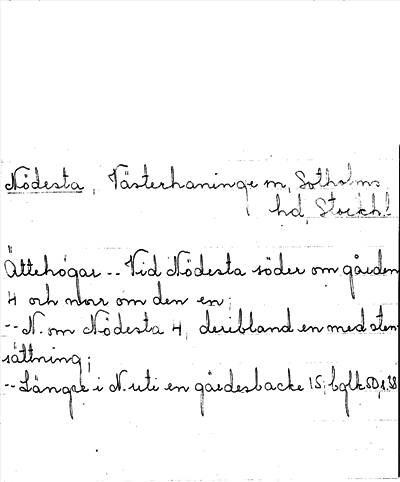 Nödesta, Västerhaninge m, Sotholms
hd, Stockh.l
Ättehögar -- Vid Nödesta söder om gården
4 och norr om den en;
-- N. om Nödesta 4, deribland en med sten-
sättning;
-- Längre i N. uti en gärdesbacke 15;